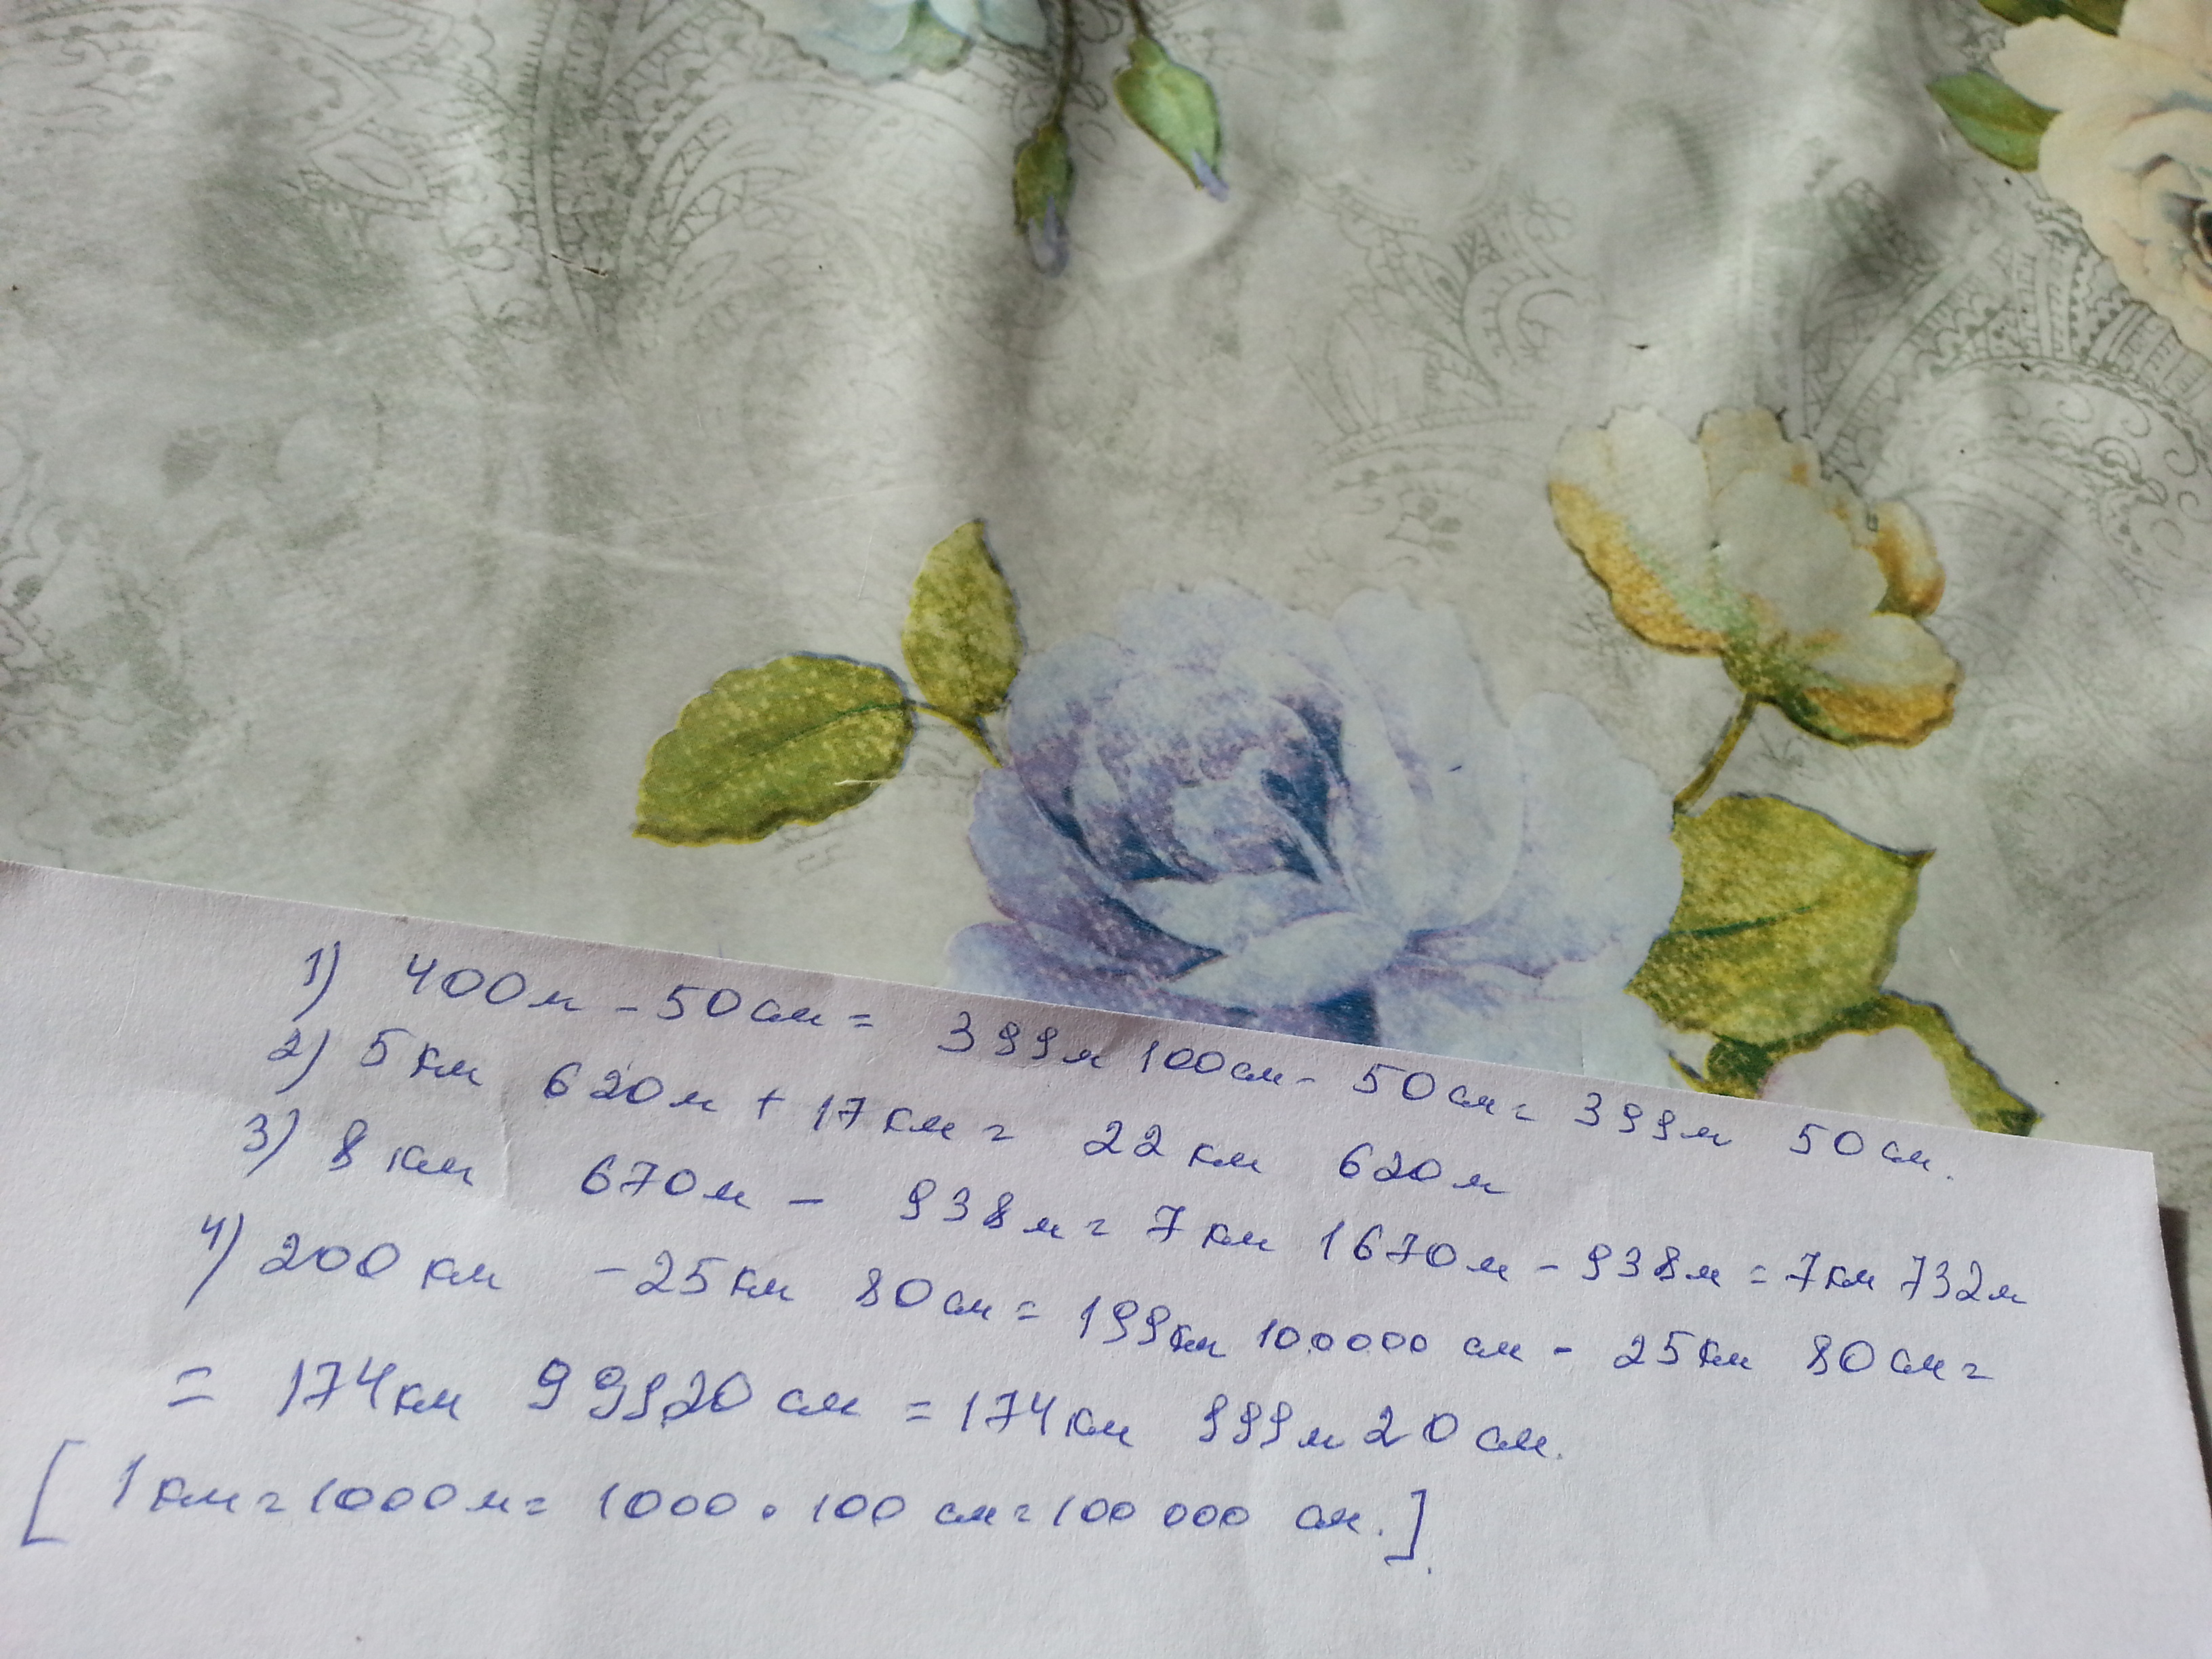 1) 400м - 50см = 399м 100см - 50см = 399м 50см.
2) 5км 620м + 17км = 22км 620м
3) 8км 670м - 938м = 7км 1670м - 938м = 7км 732м
4) 200км - 25км 80см = 199км 100000 см - 25км 80см =
= 174км 99920 см = 174км 999м 20см.
[1км = 1000м = 1000 · 100 см = 100 000 см.]